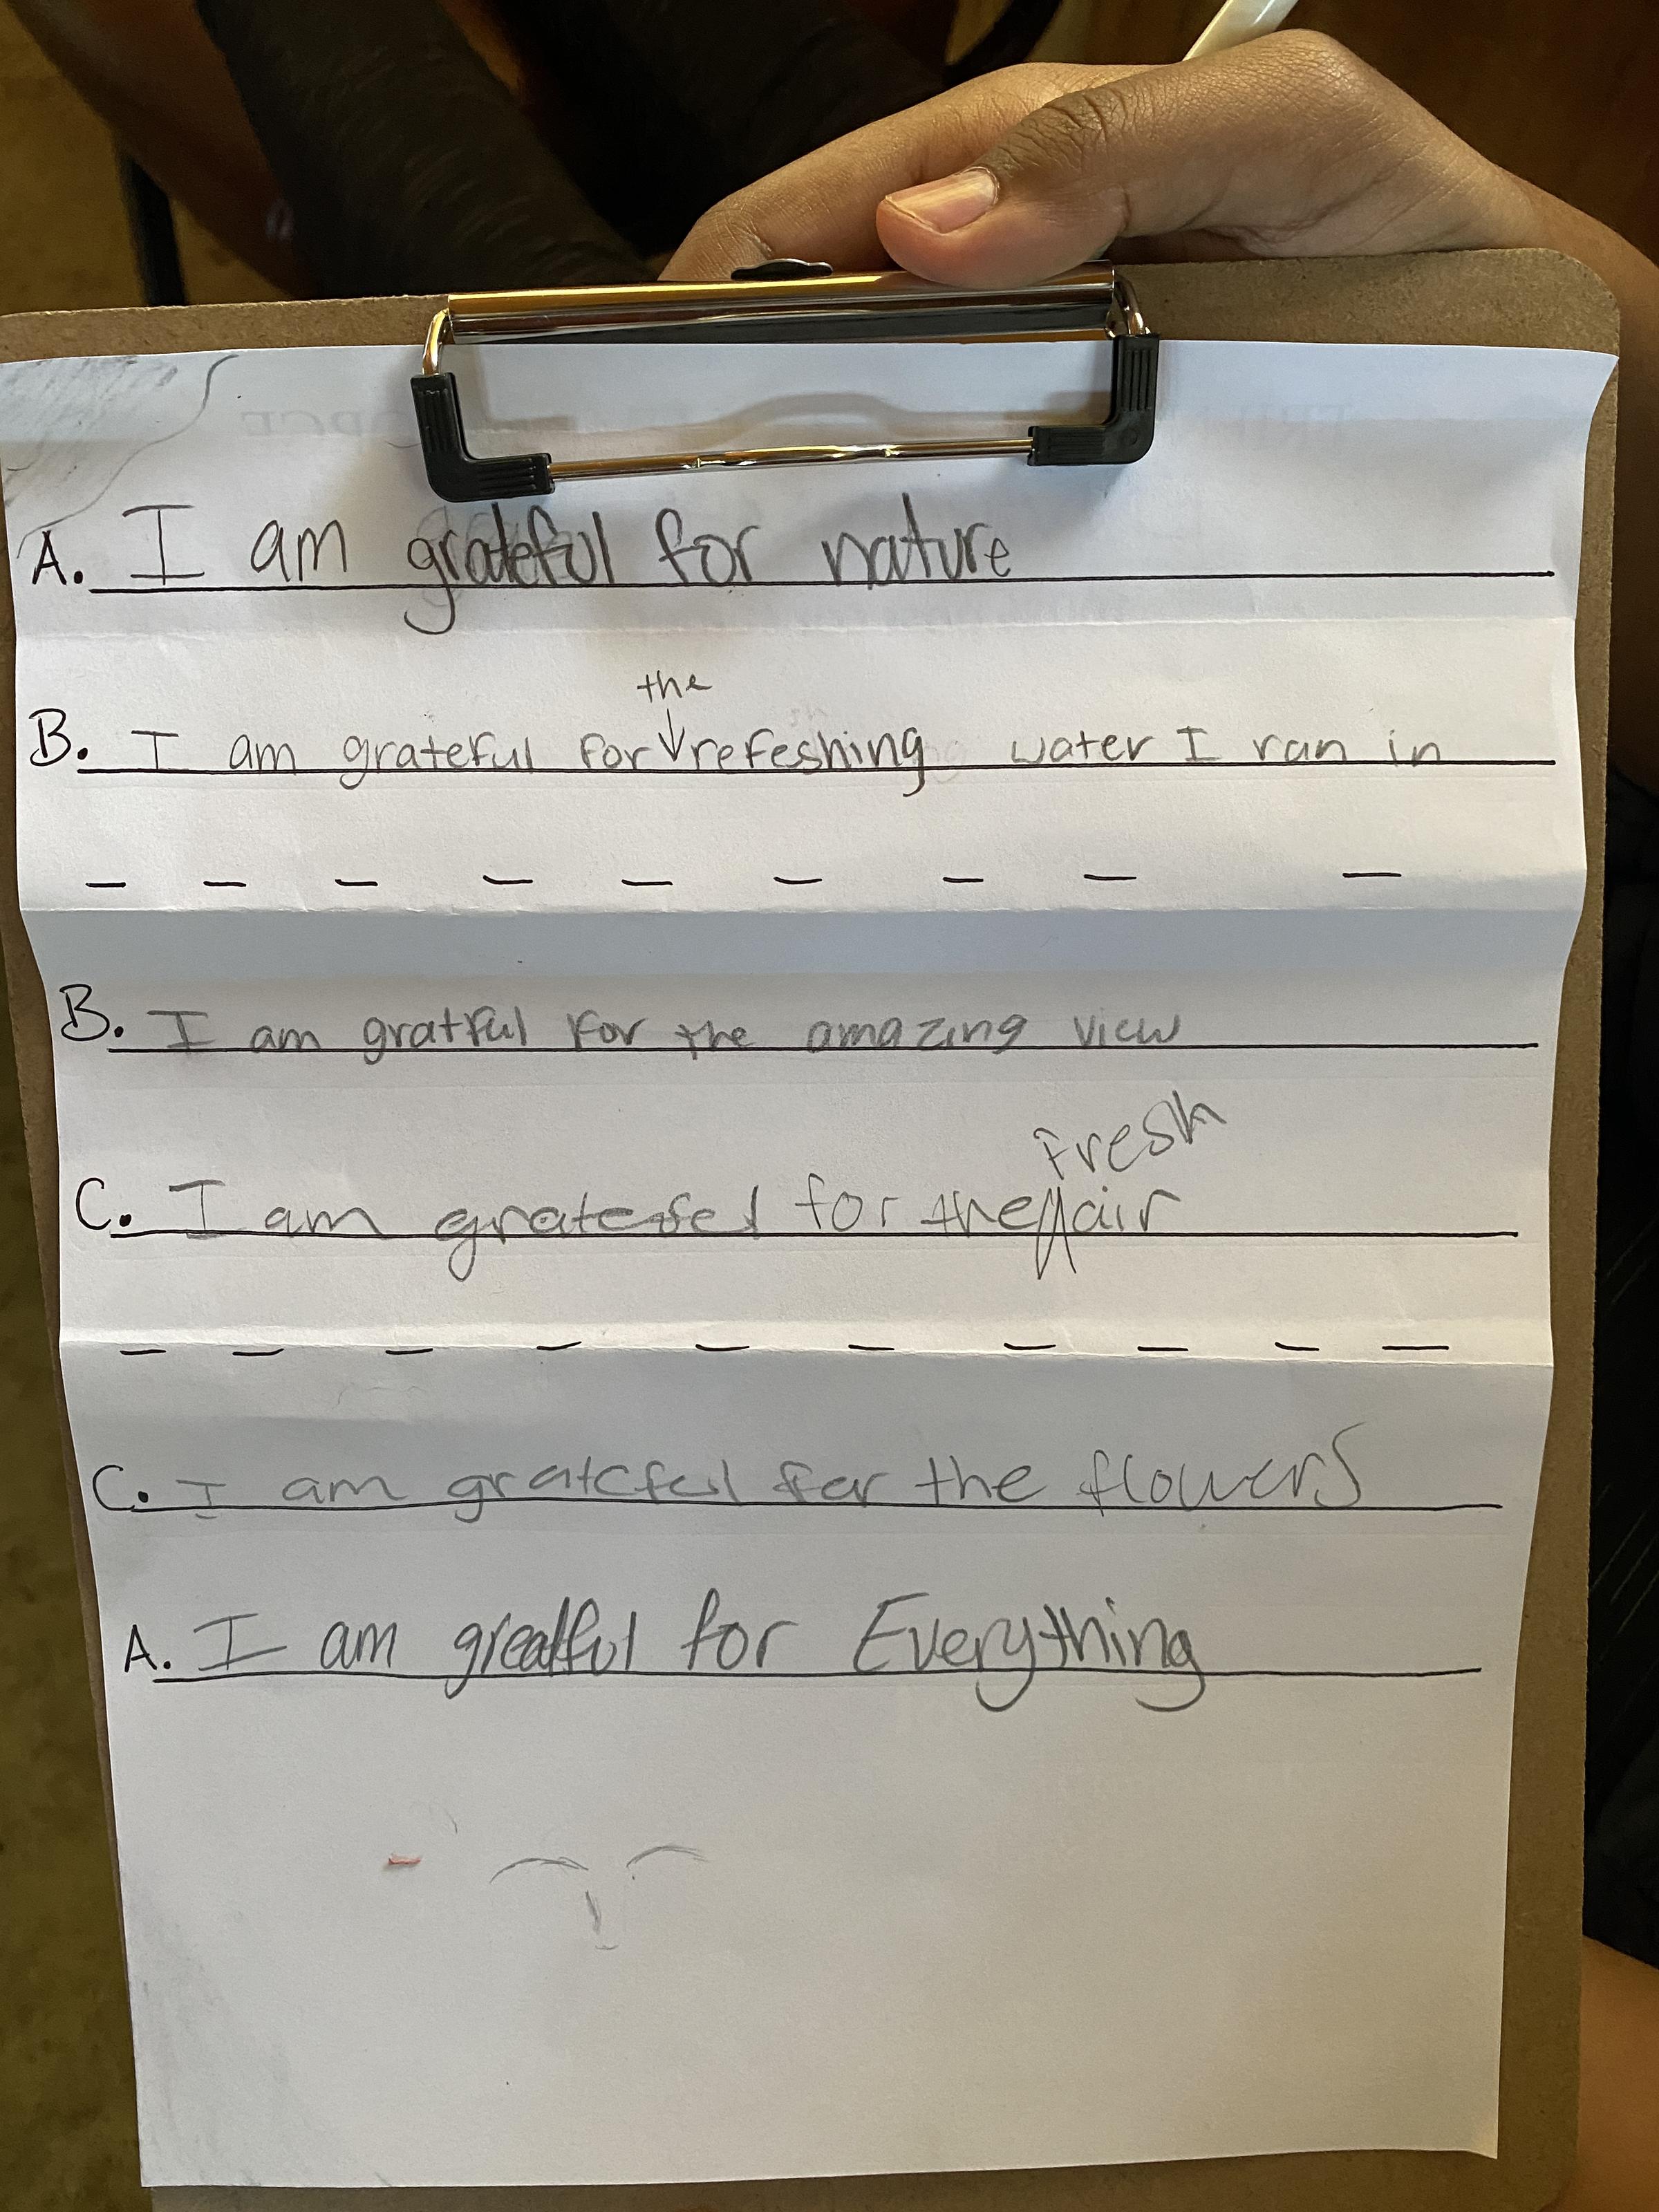 A. I am grateful for nature
the
B. I am grateful for refeshing water I ran in
B. I am gratful for the amazing view
Fresh
C. I am grateful for the air
C. I am grateful for the flowers
A. I am greatful for Everything